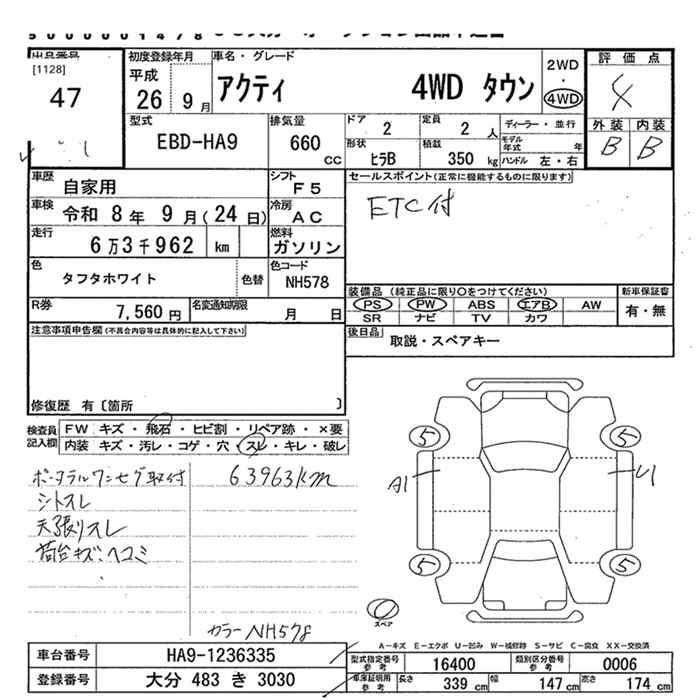 出品番号
[1128]
47
初度登録年月
平成
26 年 9 月
車名・グレード
アクティ 4WD タウン
2WD
・
4WD
評価点
4
外装 内装
B B
型式
EBD-HA9
排気量
660
cc
ドア
2
定員
2 人
形状
ヒラB
積載
350 kg
ディーラー・並行
モデル年式 年
ハンドル 左・右
車歴
自家用
シフト
F5
車検
令和 8 年 9 月 (24 日)
冷房
AC
走行
6万3千962 km
燃料
ガソリン
色
タフタホワイト
色替
色コード
NH578
R券
7,560 円
名変通知期限
月 日
セールスポイント(正常に機能するものに限ります)
ETC付
装備品 (純正品に限り○をつけてください)
PS PW ABS エアB AW
SR ナビ TV カワ
新車保証書
有・無
後日品
取説・スペアキー
注意事項申告欄(不具合内容等は具体的に記入して下さい)
修復歴 有〔箇所 〕
検査員記入欄
FW キズ・飛石・ヒビ割・リペア跡・×要
内装 キズ・汚レ・コゲ・穴・スレ・キレ・破レ
ポータブルワンセグ取付
63963km
シートスレ
天張リスレ
荷台キズ、ヘコミ
カラーNH578
5
5
A1
U1
5
5
スペア
A-キズ E-エクボ U-凹み W-補修跡 S-サビ C-腐食 XX-交換済
車台番号
HA9-1236335
登録番号
大分 483 き 3030
型式指定番号
参考
16400
類別区分番号
参考
0006
車庫証明用
参考
長さ 339 cm
幅 147 cm
高さ 174 cm